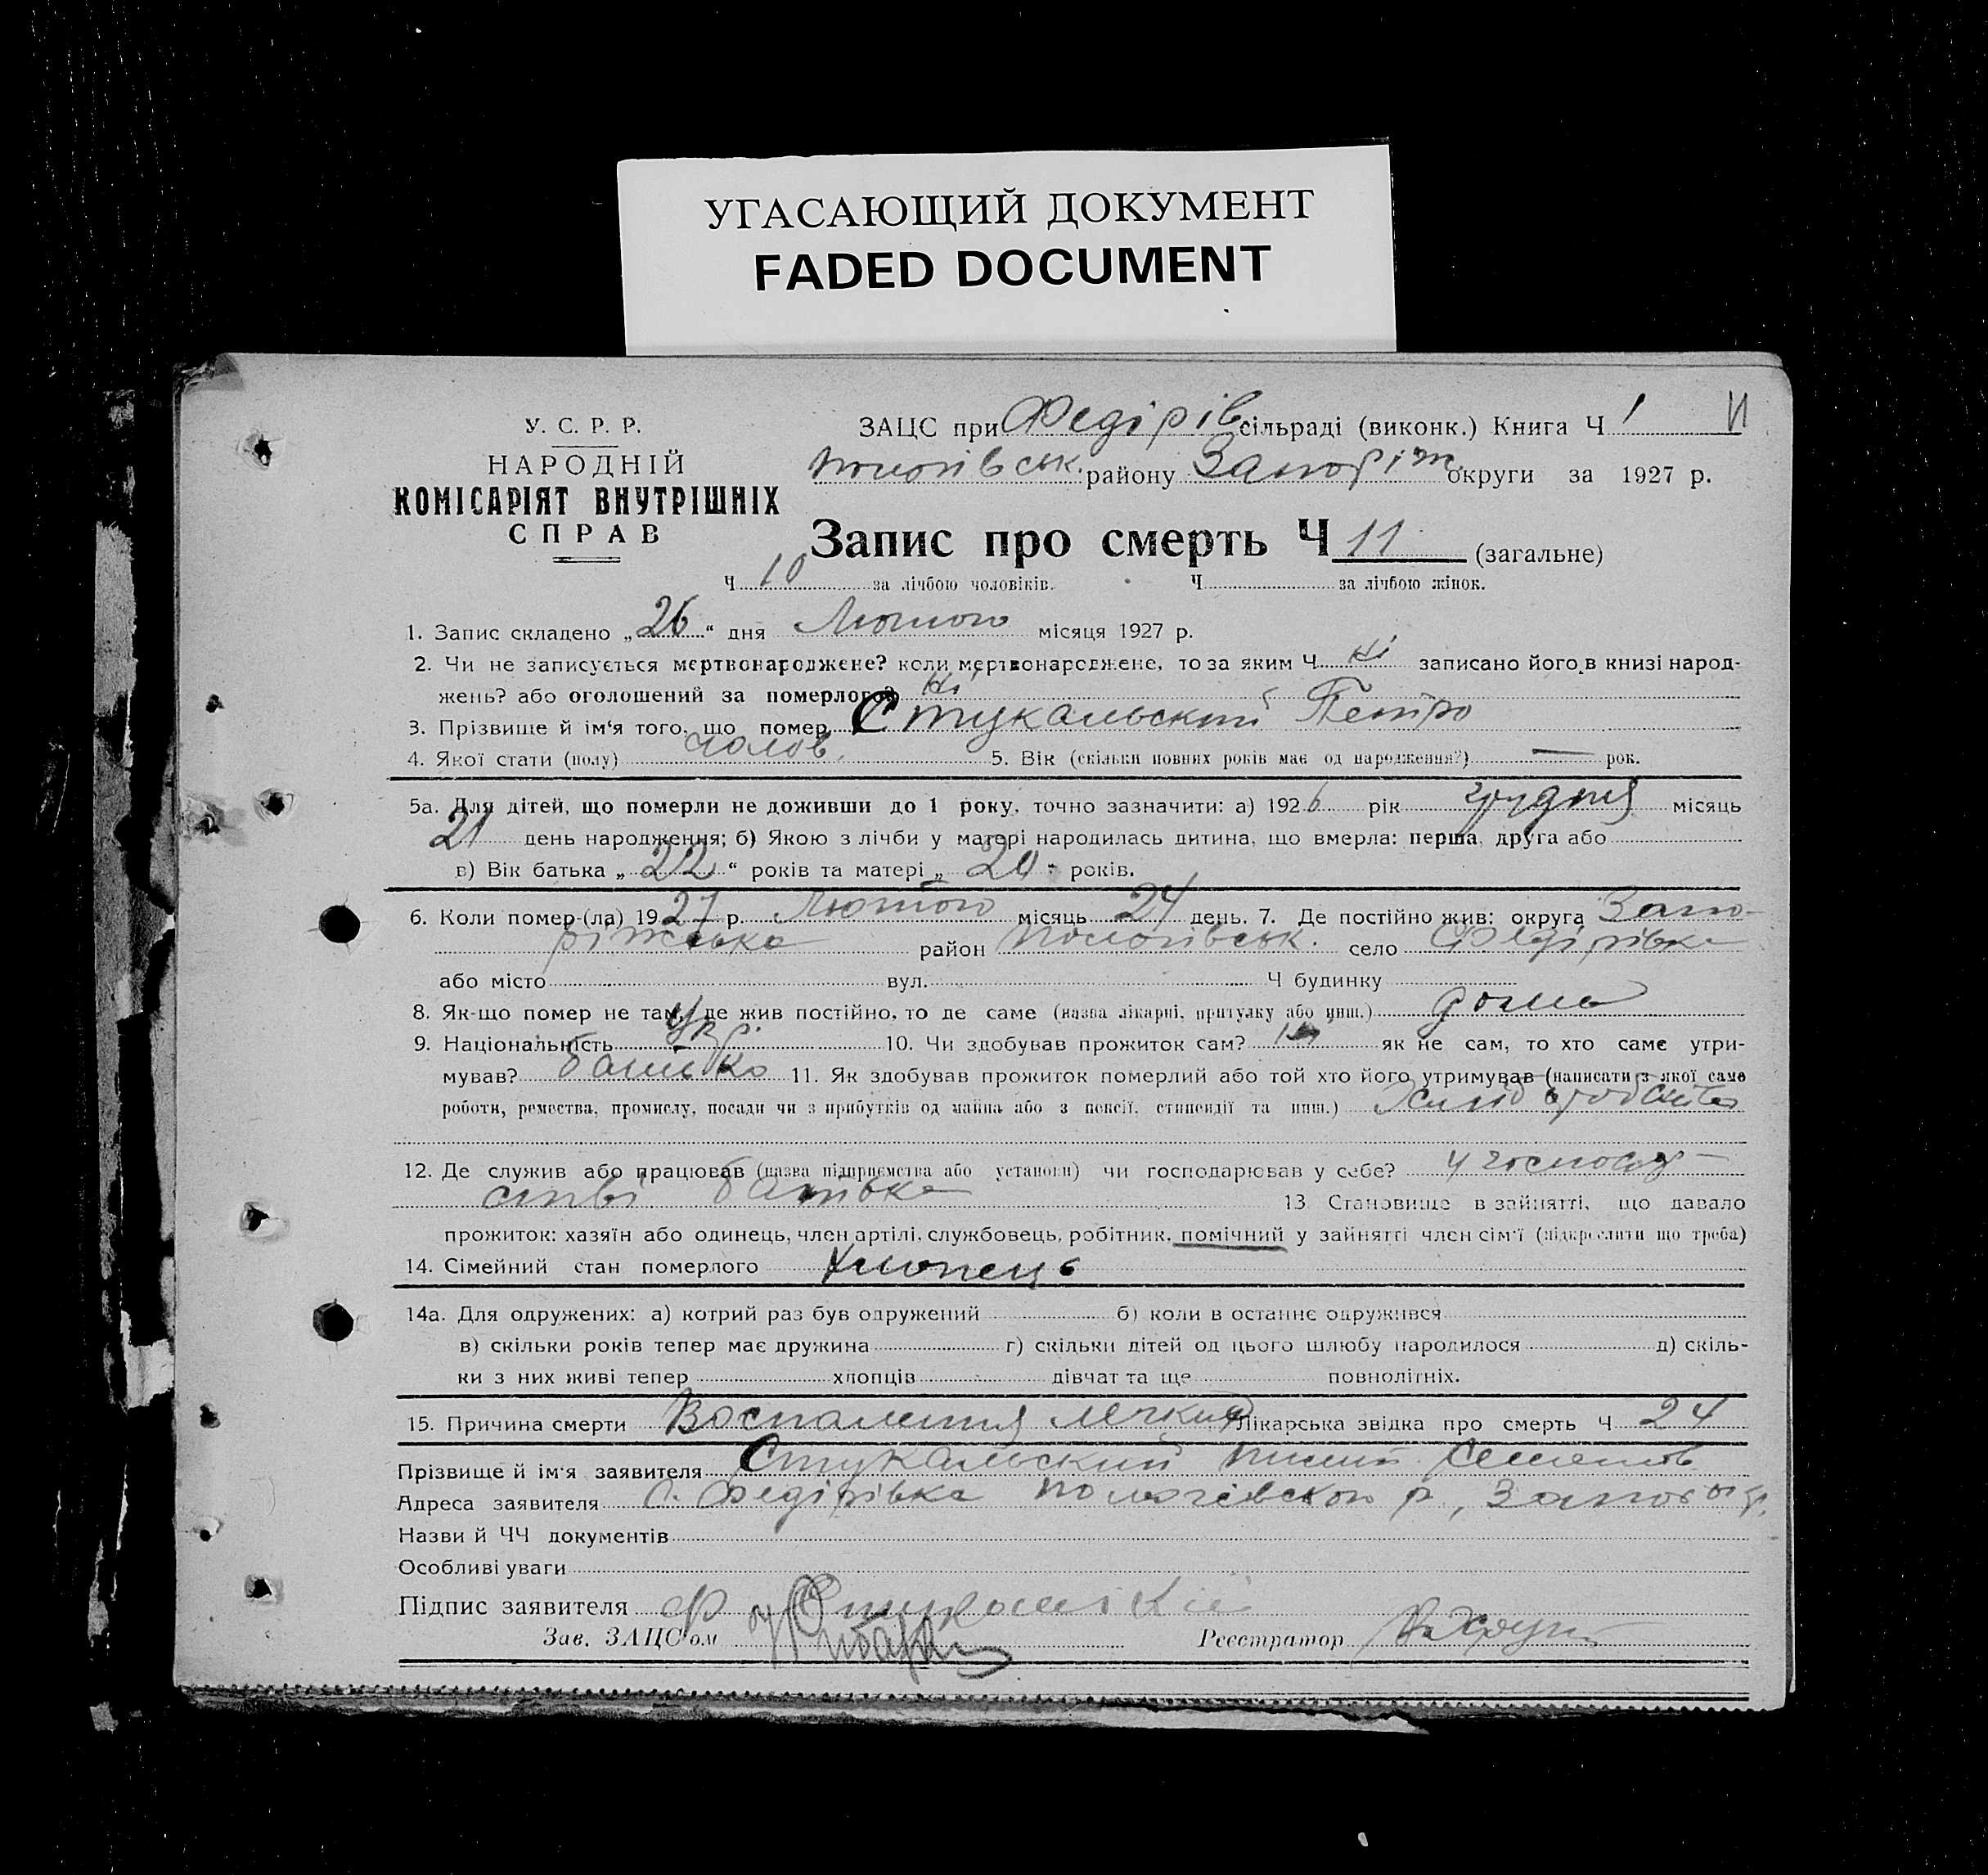 УГАСАЮЩИЙ ДОКУМЕНТ
FADED DOCUMENT
У. С. Р. Р.
НАРОДНІЙ
КОМІСАРІЯТ ВНУТРІШНІХ
СПРАВ
ЗАЦС при Федірів сільраді (виконк.) Книга Ч 1
Пологівськ. району Запоріж. округи за 1927 р.
Запис про смерть Ч 11 (загальне)
Ч 10 за лічбою чоловіків. Ч за лічбою жінок.
1. Запис складено „26“ дня Лютого місяця 1927 р.
2. Чи не записується мертвонароджене? коли мертвонароджене, то за яким Ч ні записано його в книзі народ-
жень? або оголошений за померлого? ні
3. Прізвище й ім'я того, що помер Стукальский Петро
4. Якої стати (полу) чолов. 5. Вік (скільки повних років має од народження?) — рок.
5а. Для дітей, що померли не доживши до 1 року, точно зазначити: а) 1926 рік грудня місяць
21 день народження; б) Якою з лічби у матері народилась дитина, що вмерла: перша, друга або
в) Вік батька „22“ років та матері „20“ років.
6. Коли помер-(ла) 1927 р. Лютого місяць 24 день. 7. Де постійно жив: округа Запо-
ріжська район Пологівськ. село Федірівка
або місто вул. Ч будинку
8. Як-що помер не там, де жив постійно, то де саме (назва лікарні, притулку або инш.) дома
9. Національність Укр. 10. Чи здобував прожиток сам? ні як не сам, то хто саме утри-
мував? батько 11. Як здобував прожиток померлий або той хто його утримував (написати з якої саме
роботи, ремества, промислу, посади чи з прибутків од майна або з пенсії, стипендії та инш.)
12. Де служив або працював (назва підприємства або установи) чи господарював у себе? у господар-
стві батька 13 Становище в зайнятті, що давало
прожиток: хазяїн або одинець, член артілі, службовець, робітник, помічний у зайнятті член сім'ї (підкреслити що треба)
14. Сімейний стан померлого Хлопець
14а. Для одружених: а) котрий раз був одружений б) коли в останнє одружився
в) скільки років тепер має дружина г) скільки дітей од цього шлюбу народилося д) скіль-
ки з них живі тепер хлопців дівчат та ще повнолітніх.
15. Причина смерти Воспаления легких Лікарська звідка про смерть Ч 24
Прізвище й ім'я заявителя Стукальский Семенов
Адреса заявителя с. Федірівка Пологівского р,
Назви й ЧЧ документів
Особливі уваги
Підпис заявителя
Зав. ЗАЦС'ом Реєстратор